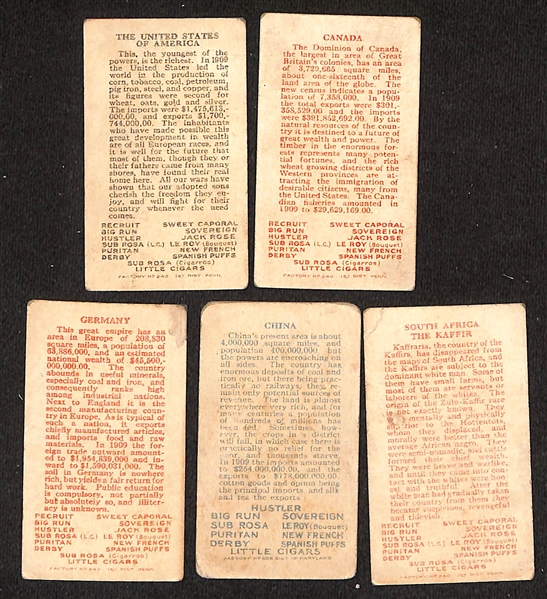 THE UNITED STATES
OF AMERICA
This, the youngest of the
powers, is the richest. In 1909
the United States led the
world in the production of
corn, tobacco, coal, petroleum,
pig iron, steel, and copper, and
its figures were second for
wheat, oats, gold and silver.
The imports were $1,475,613,-
000.60, and exports $1,700,-
744,000.00. The inhabitants
who have made possible this
great development in wealth
are of all European races, and
it is well for the future that
most of them, though they or
their fathers came from many
shores, have found their real
home here. All our wars have
shown that our adopted sons
cherish the freedom they en-
joy, and will fight for their
country whenever the need
comes.
RECRUIT SWEET CAPORAL
BIG RUN SOVEREIGN
HUSTLER JACK ROSE
SUB ROSA (L.C.) LE ROY (Bouquet)
PURITAN NEW FRENCH
DERBY SPANISH PUFFS
SUB ROSA (Cigarros)
LITTLE CIGARS
FACTORY No 240 1ST DIST. PENN.
CANADA
The Dominion of Canada,
the largest in area of Great
Britain's colonies, has an area
of 3,729,665 square miles,
about one-sixteenth of the
land area of the globe. The
new census indicates a popula-
tion of 7,358,000. In 1909
the total exports were $301,-
358,529.00 and the imports
were $391,852,692.00. In
the natural resources of the
country it is destined to a future of
great wealth and power. The
timber in the enormous for-
ests represents many poten-
tial fortunes, and the rich
wheat growing districts of the
Western provinces are at-
tracting the immigration of
desirable citizens, many from
the United States. The Cana-
dian fisheries amounted in
1909 to $29,629,169.00.
RECRUIT SWEET CAPORAL
BIG RUN SOVEREIGN
HUSTLER JACK ROSE
SUB ROSA (L.C.) LE ROY (Bouquet)
PURITAN NEW FRENCH
DERBY SPANISH PUFFS
SUB ROSA (Cigarros)
LITTLE CIGARS
FACTORY No 240 1ST DIST. PENN.
GERMANY
This great empire has an
area in Europe of 208,830
square miles, a population of
63,886,000, and an estimated
national wealth of $45,500,-
000,000.00. The country
abounds in useful minerals,
especially coal and iron, and
consequently ranks high
among industrial nations.
Next to England it is the
second manufacturing coun-
try in Europe. As is typical of
such a nation, it exports
chiefly manufactured articles,
and imports food and raw
materials. In 1909 the for-
eign trade outward amount-
ed to $1,954,839,000 and in-
ward to $1,590,031,000. The
soil in Germany is nowhere
rich, but yields a fair return
for hard work. Public education
is compulsory, not partially
but absolutely so, and illiter-
acy is unknown.
RECRUIT SWEET CAPORAL
BIG RUN SOVEREIGN
HUSTLER JACK ROSE
PURITAN NEW FRENCH
DERBY SPANISH PUFFS
SUB ROSA (Cigarros)
LITTLE CIGARS
FACTORY No 240 1ST DIST. PENN.
CHINA
China's present area is about
4,000,000 square miles, and
population 400,000,000 but
the powers are encroaching on
all sides. The country has
enormous deposits of coal and
iron ore, but there being prac-
tically no railways, they re-
main only potential sources of
revenue. The land is almost
everywhere very rich, and for
many centuries a population
of hundreds of millions has
been fed. Sometimes, how-
ever, the crops in a district
will fail, in which case there is
practically no relief for the
poor, and thousands starve.
In 1909 the imports amounted
to $264,000,000.00, and the
exports to $178,000,000.00,
cotton goods and opium being
the principal imports, and silk
and tea the exports.
HUSTLER
BIG RUN SOVEREIGN
SUB ROSA LE ROY (Bouquet)
PURITAN NEW FRENCH
DERBY SPANISH PUFFS
LITTLE CIGARS
DIST. OF MARYLAND
SOUTH AFRICA
THE KAFFIR
Kaffraria, the country of the
Kaffirs, has disappeared from
the maps of South Africa, and
the Kaffirs are subject to the
dominant white man. Some of
them have small farms, but
most of them are servants or
laborers of the whites. The
origin of the Zulu-Kaffir race
is not exactly known. They
were mentally and physically
superior to the Hottentots,
whom they displaced, and
morally were better than the
average African negro. They
were semi-nomadic, and cattle
formed their chief wealth.
They were brave and warlike,
and until they came into con-
tact with the whites were hon-
est and truthful. After the
white man had gradually taken
their country from them they
became suspicious, revengeful
and
RECRUIT SWEET CAPORAL
BIG RUN SOVEREIGN
HUSTLER JACK ROSE
SUB ROSA (L.C.) LE ROY (Bouquet)
PURITAN NEW FRENCH
DERBY SPANISH PUFFS
SUB ROSA (Cigarros)
LITTLE CIGARS
FACTORY No 240 1ST DIST. PENN.